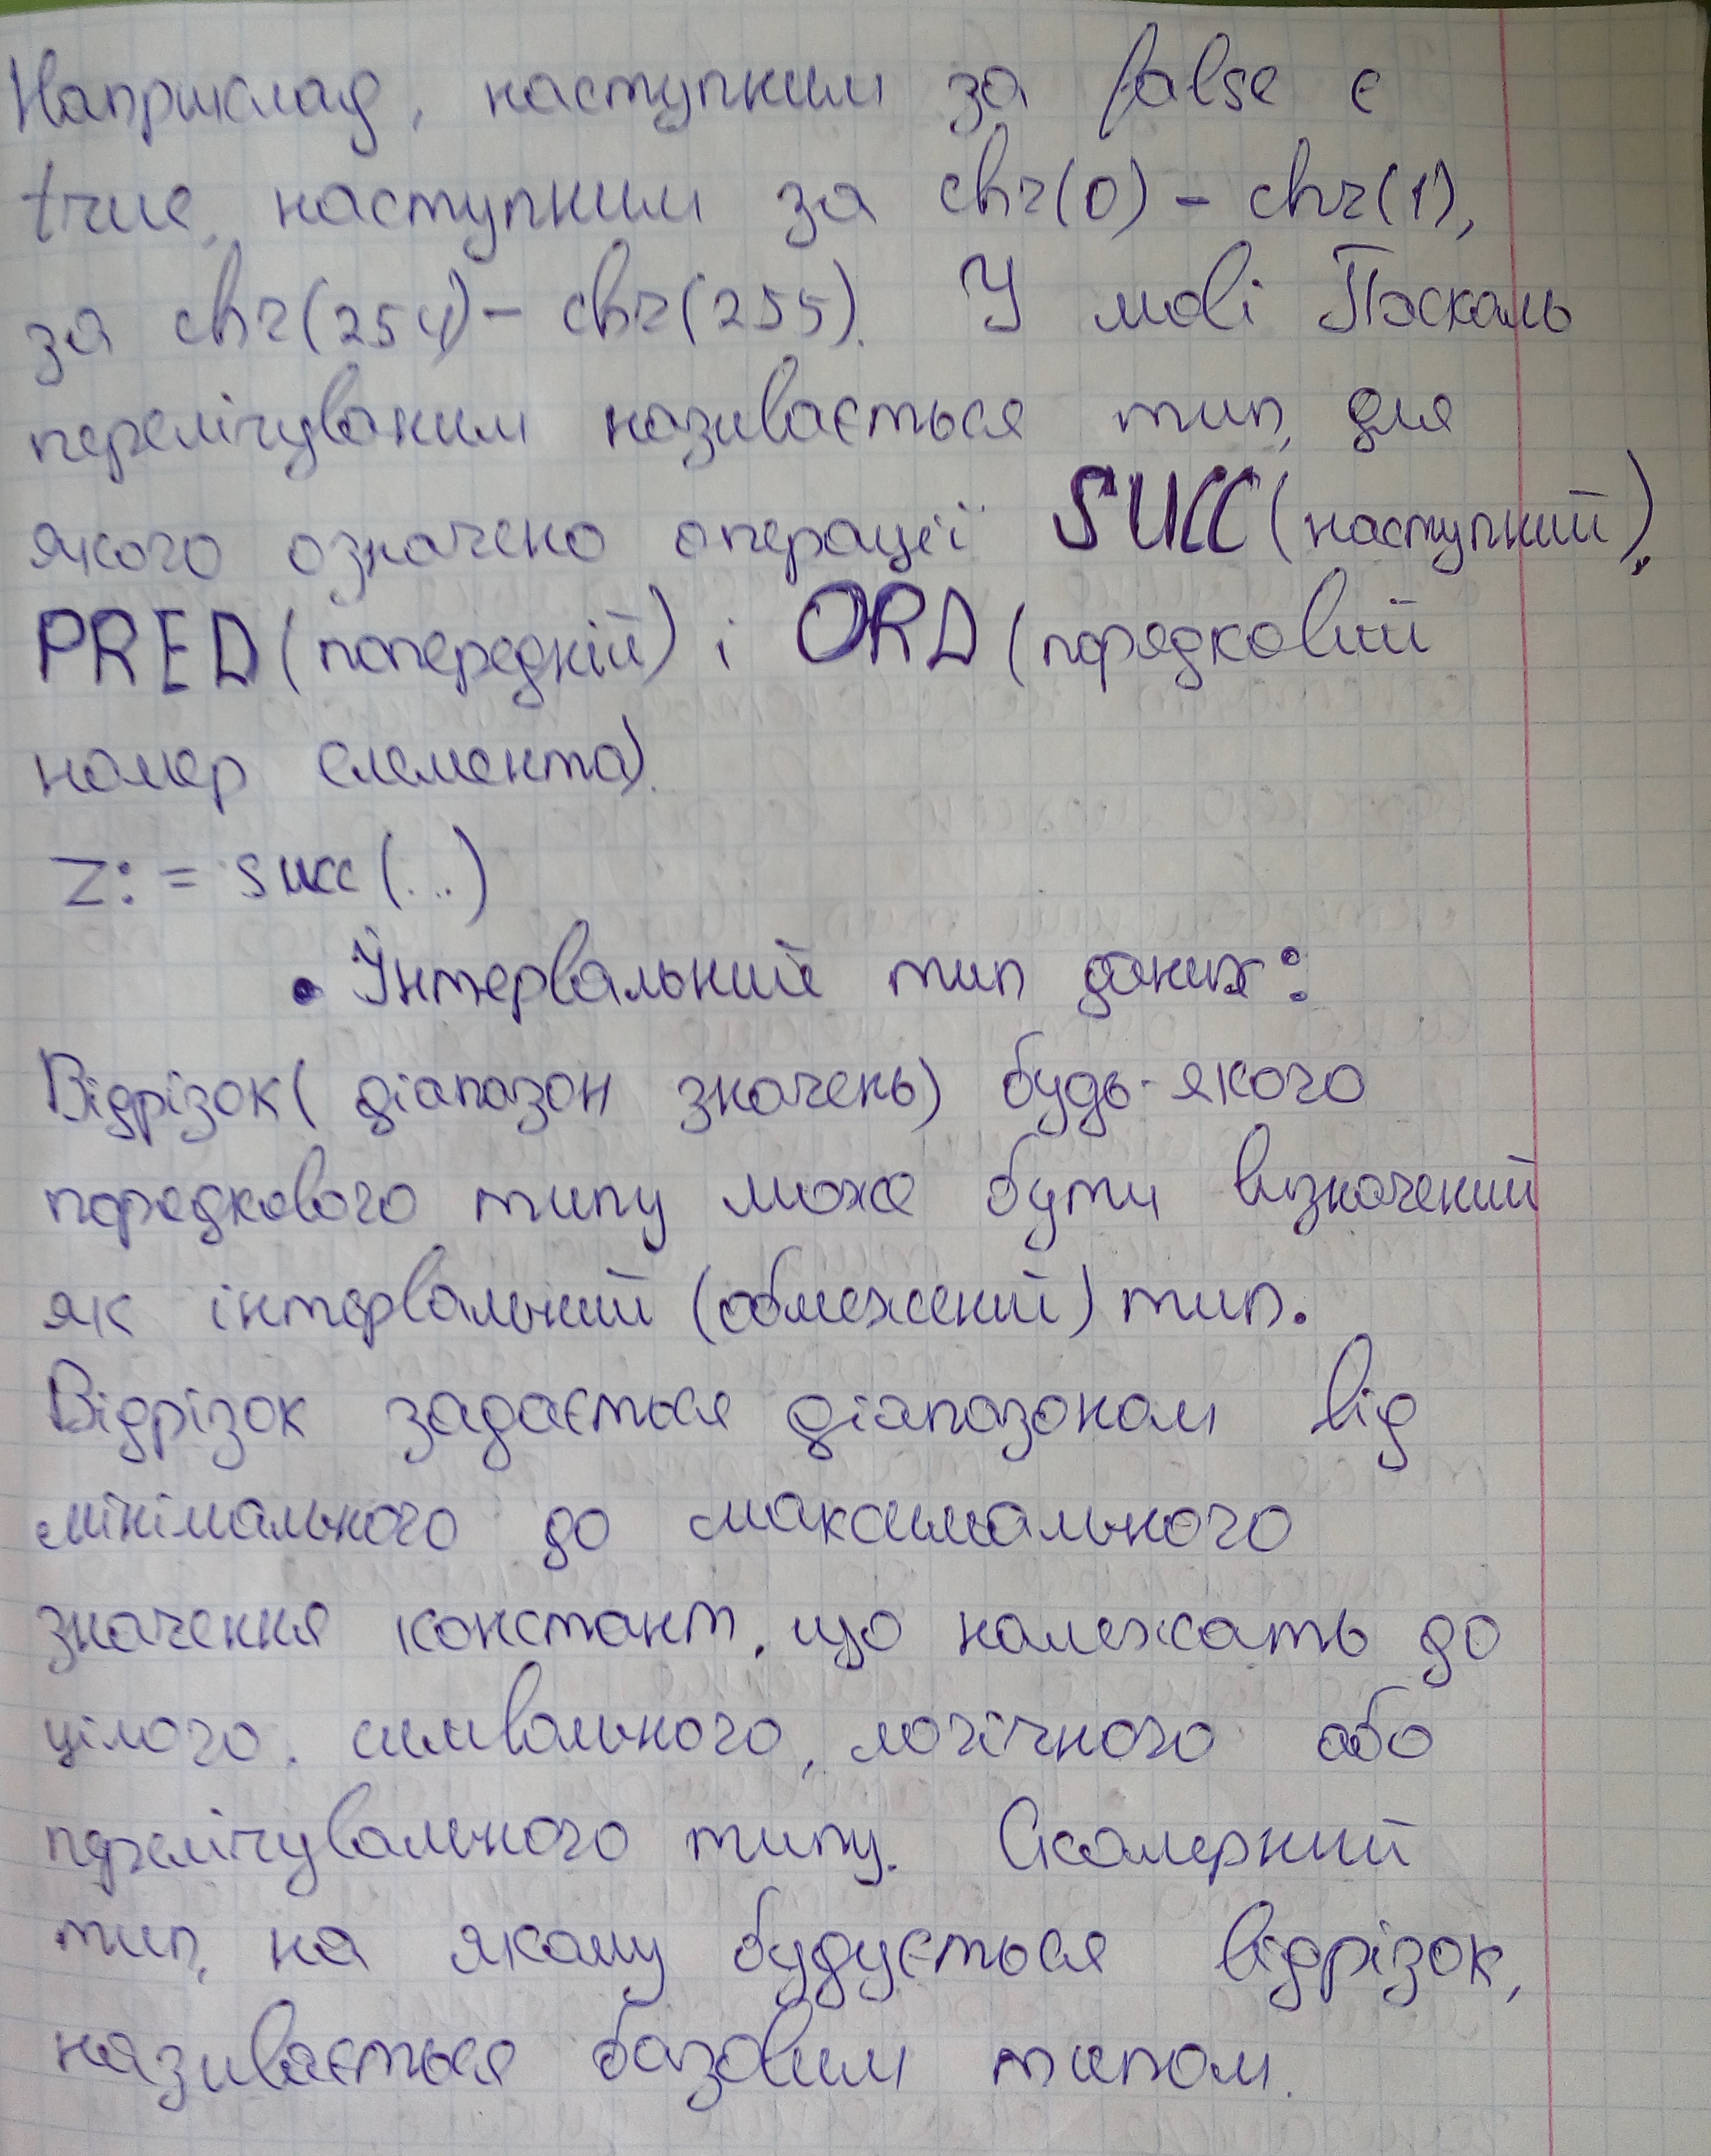 Наприклад, наступним за false є
true, наступним за chr(0) - chr(1),
за chr(254) - chr(255). У мові Паскаль
перелічуваним називається тип, для
якого означено операції SUCC (наступний),
PRED (попередній) і ORD (порядковий
номер елемента).
Z: = succ (...)
• Інтервальний тип даних:
Відрізок ( діапазон значень) будь-якого
порядкового типу може бути визначений
як інтервальний (обмежений) тип.
Відрізок задається діапазоном від
мінімального до максимального
значення констант, що належать до
цілого, символьного, логічного або
перелічувального типу. Скалярний
тип, на якому будується відрізок,
називається базовим типом.